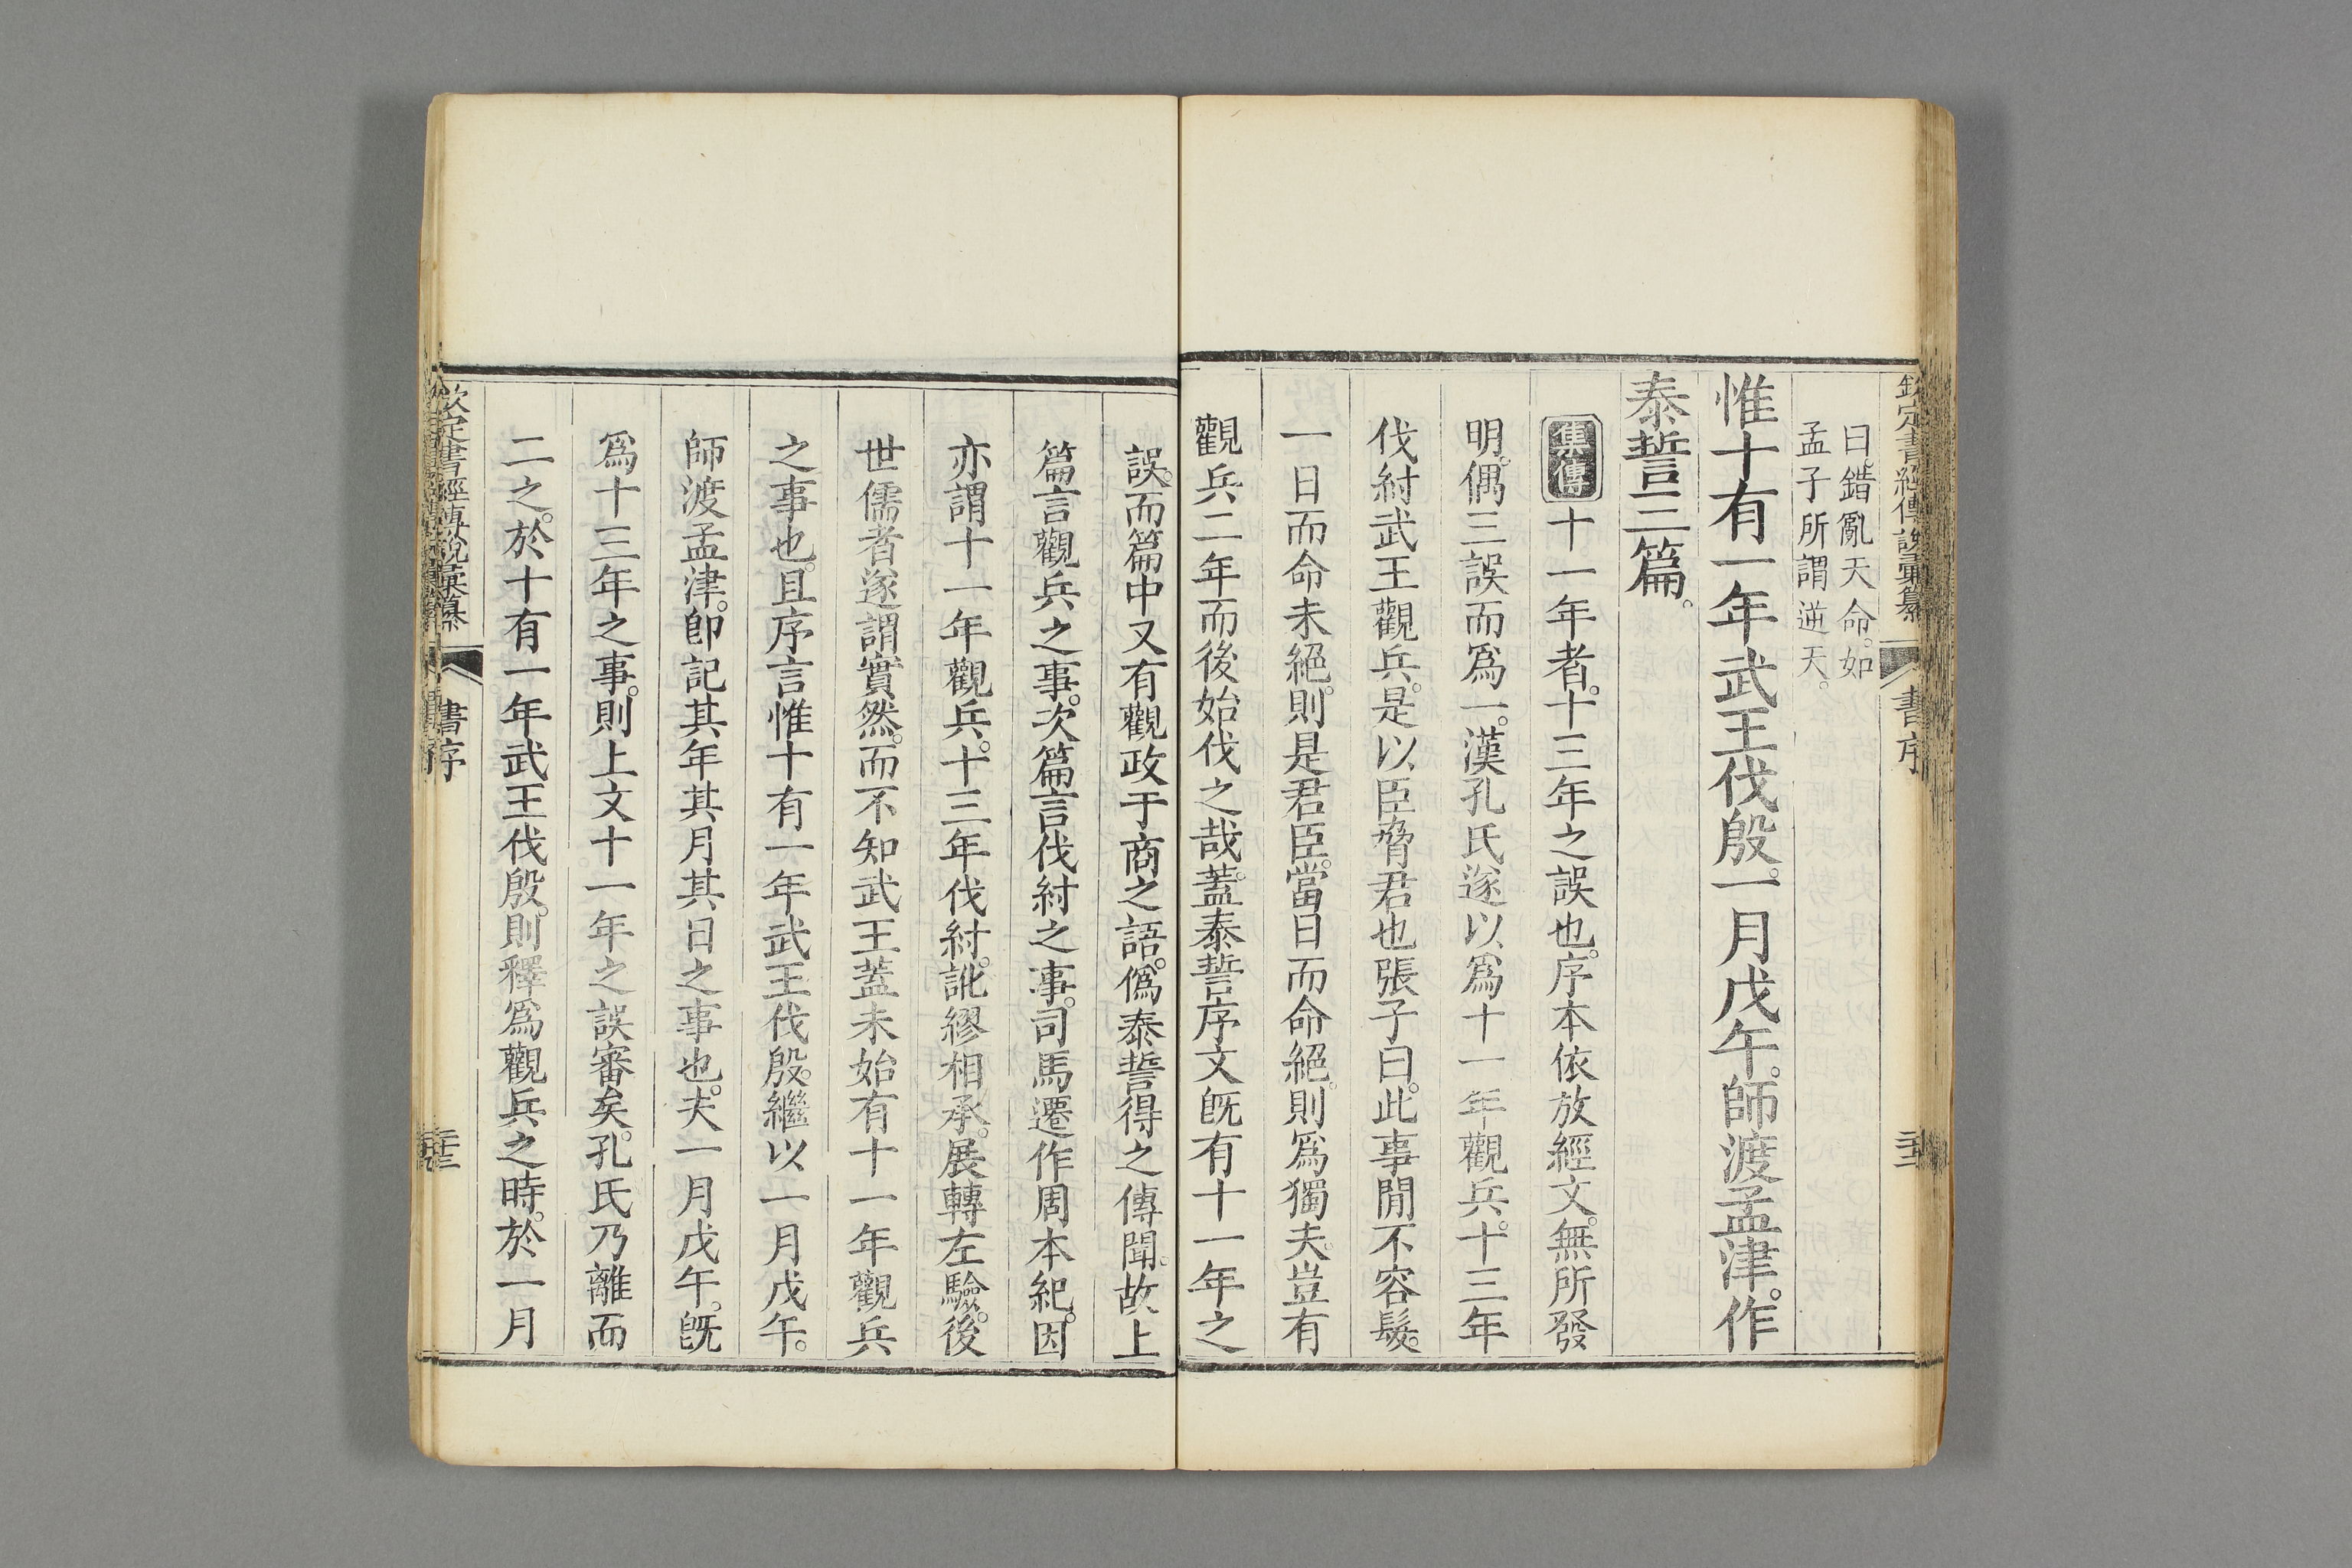 欽定書經傳說彙纂
書序
曰。錯亂天命。如
孟子所謂逆天。
惟十有一年武王伐殷。一月戊午。師渡孟津。作
泰誓三篇。
集傳十一年者。十三年之誤也。序本依放經文。無所發
明。偶三誤而爲一。漢孔氏遂以爲十一年觀兵。十三年
伐紂。武王觀兵。是以臣脅君也。張子曰。此事閒不容髮。
一日而命未絕。則是君臣。當日而命絕。則爲獨夫。豈有
觀兵二年而後始伐之哉。蓋泰誓序文旣有十一年之
誤。而篇中又有觀政于商之語。僞泰誓得之傳聞。故上
篇言觀兵之事。次篇言伐紂之事。司馬遷作周本紀。因
亦謂十一年觀兵。十三年伐紂。訛繆相承。展轉左驗。後
世儒者遂謂實然。而不知武王蓋未始有十一年觀兵
之事也。且序言惟十有一年武王伐殷。繼以一月戊午。
師渡孟津。卽記其年其月其日之事也。夫一月戊午。旣
爲十三年之事。則上文十一年之誤審矣。孔氏乃離而
二之。於十有一年武王伐殷。則釋爲觀兵之時。於一月
欽定書經傳說彙纂
書序